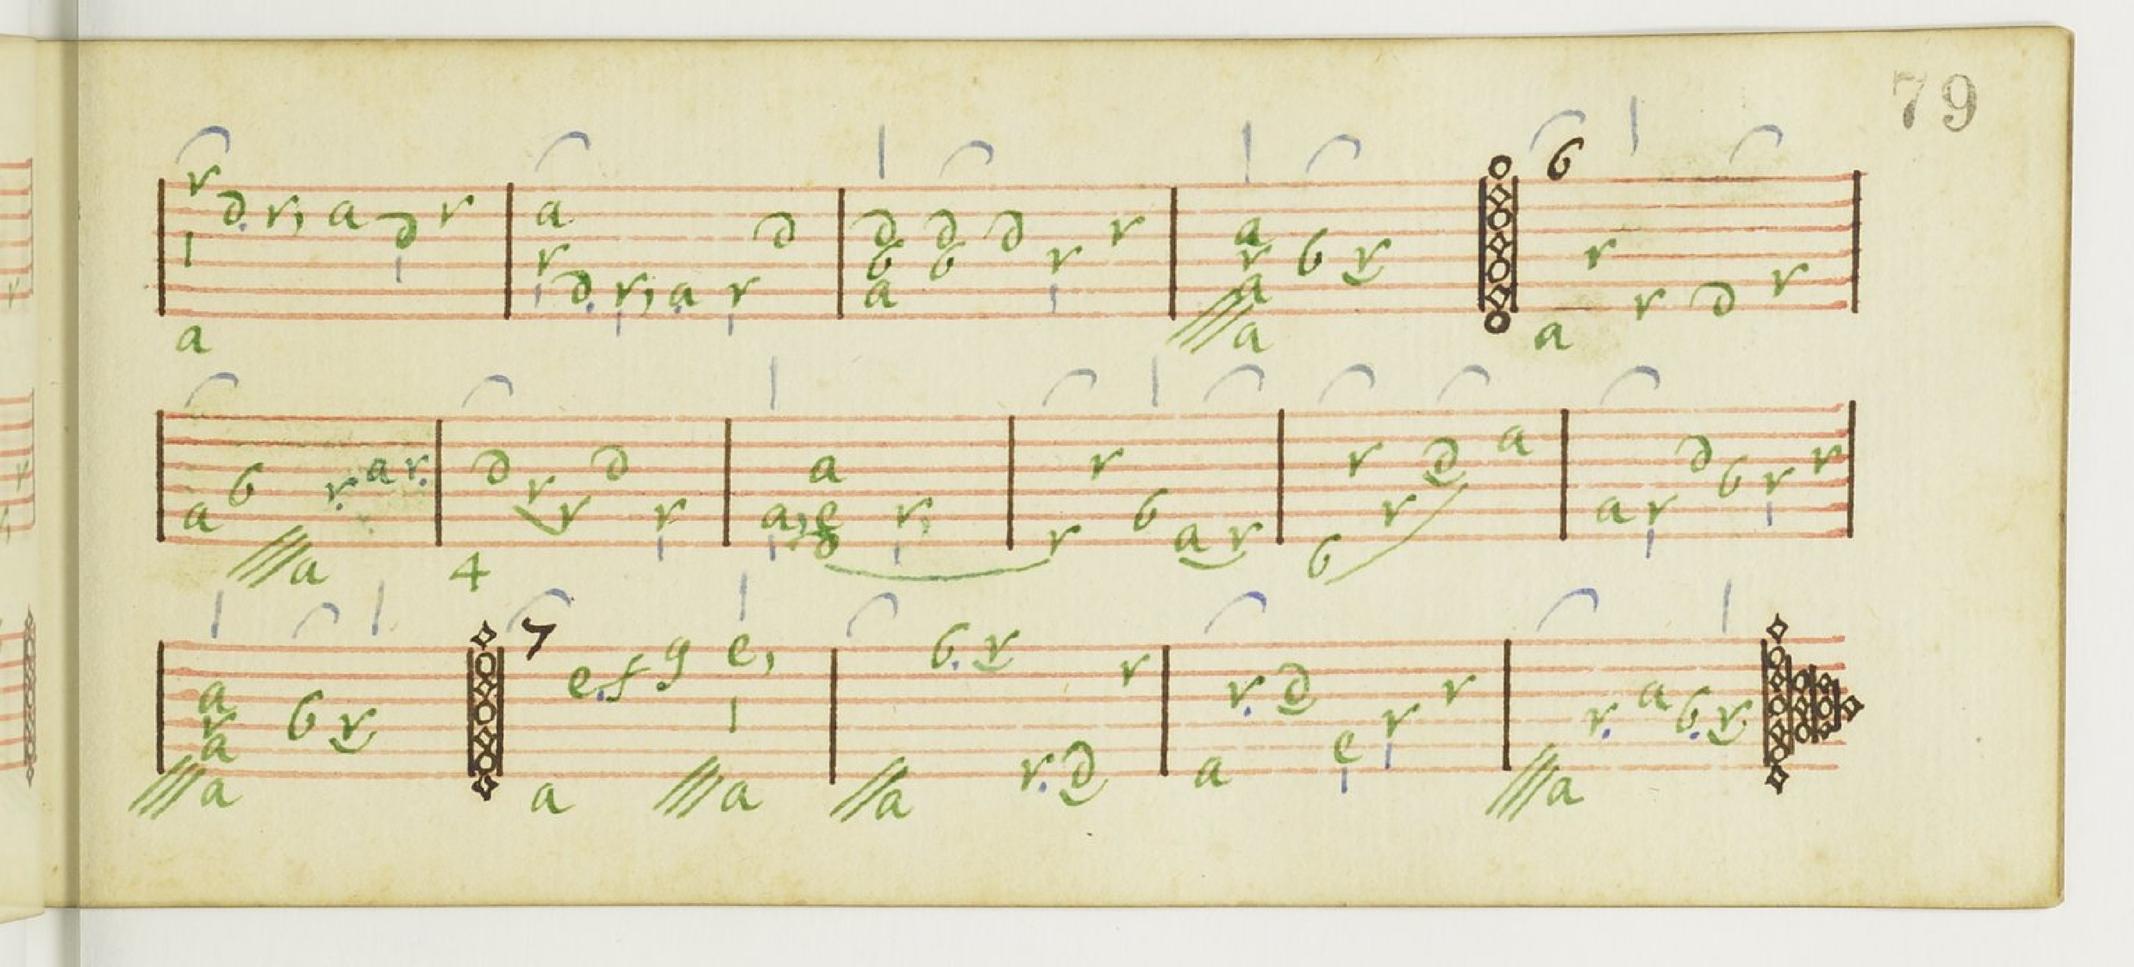 79
6
r d r, a d r a r d r, a r d d b a d b d r r a r a a b r
a r r d r
a b a r a r. d r r d r a, a e g r, r r b a r b r r d a a r d b r r
4
7
a r a a b r a e. f g e, a a b. r r. d r a r. d e r r a r. a b. r